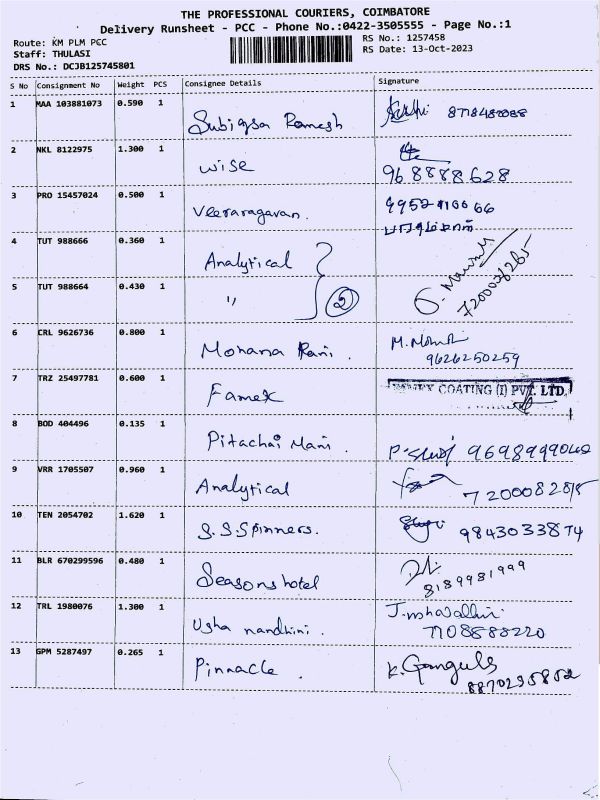 THE PROFESSIONAL COURIERS, COIMBATORE
Delivery Runsheet - PCC - Phone No.:0422-3505555 - Page No.:1
Route: KM PLM PCC
RS No.: 1257458
Staff: THULASI
RS Date: 13-Oct-2023
DRS No.: DCJB125745801
S No Consignment No Weight PCS Consignee Details Signature
1 MAA 103881073 0.590 1
Ramesh
2 NKL 8122975 1.300 1
wise 968888628
3 PRO 15457024 0.500 1
Veeraragavan.
4 TUT 988666 0.360 1
Analytical
5 TUT 988664 0.430 1
" 2
6 CRL 9626736 0.800 1
Mohana Rani. 9626250259
7 TRZ 25497781 0.600 1
Famex COATING (I) PVT. LTD.
8 BOD 404496 0.135 1
Pitachai Mani. 9698999042
9 VRR 1705507 0.960 1
Analytical
10 TEN 2054702 1.620 1
S.S Spinners. 9843033874
11 BLR 670299596 0.480 1
Seasons hotel 8189981999
12 TRL 1980076 1.300 1
Usha nandhini. 7708883220
13 GPM 5287497 0.265 1
Pinnacle.